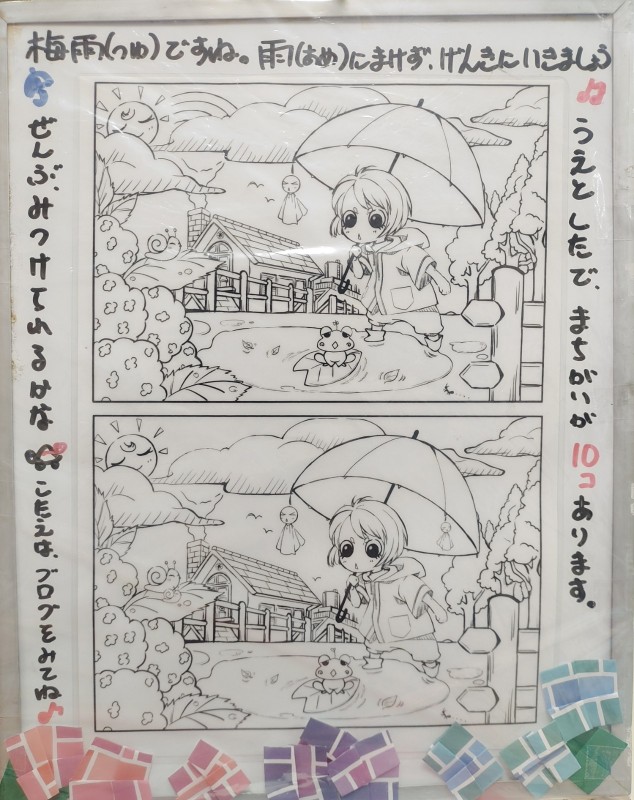 梅雨(つゆ)ですね。雨(あめ)にまけず、げんきにいきましょう
うえとしたで、まちがいが10コあります。
ぜんぶ、みつけてれるかな
こたえは、ブログをみてね